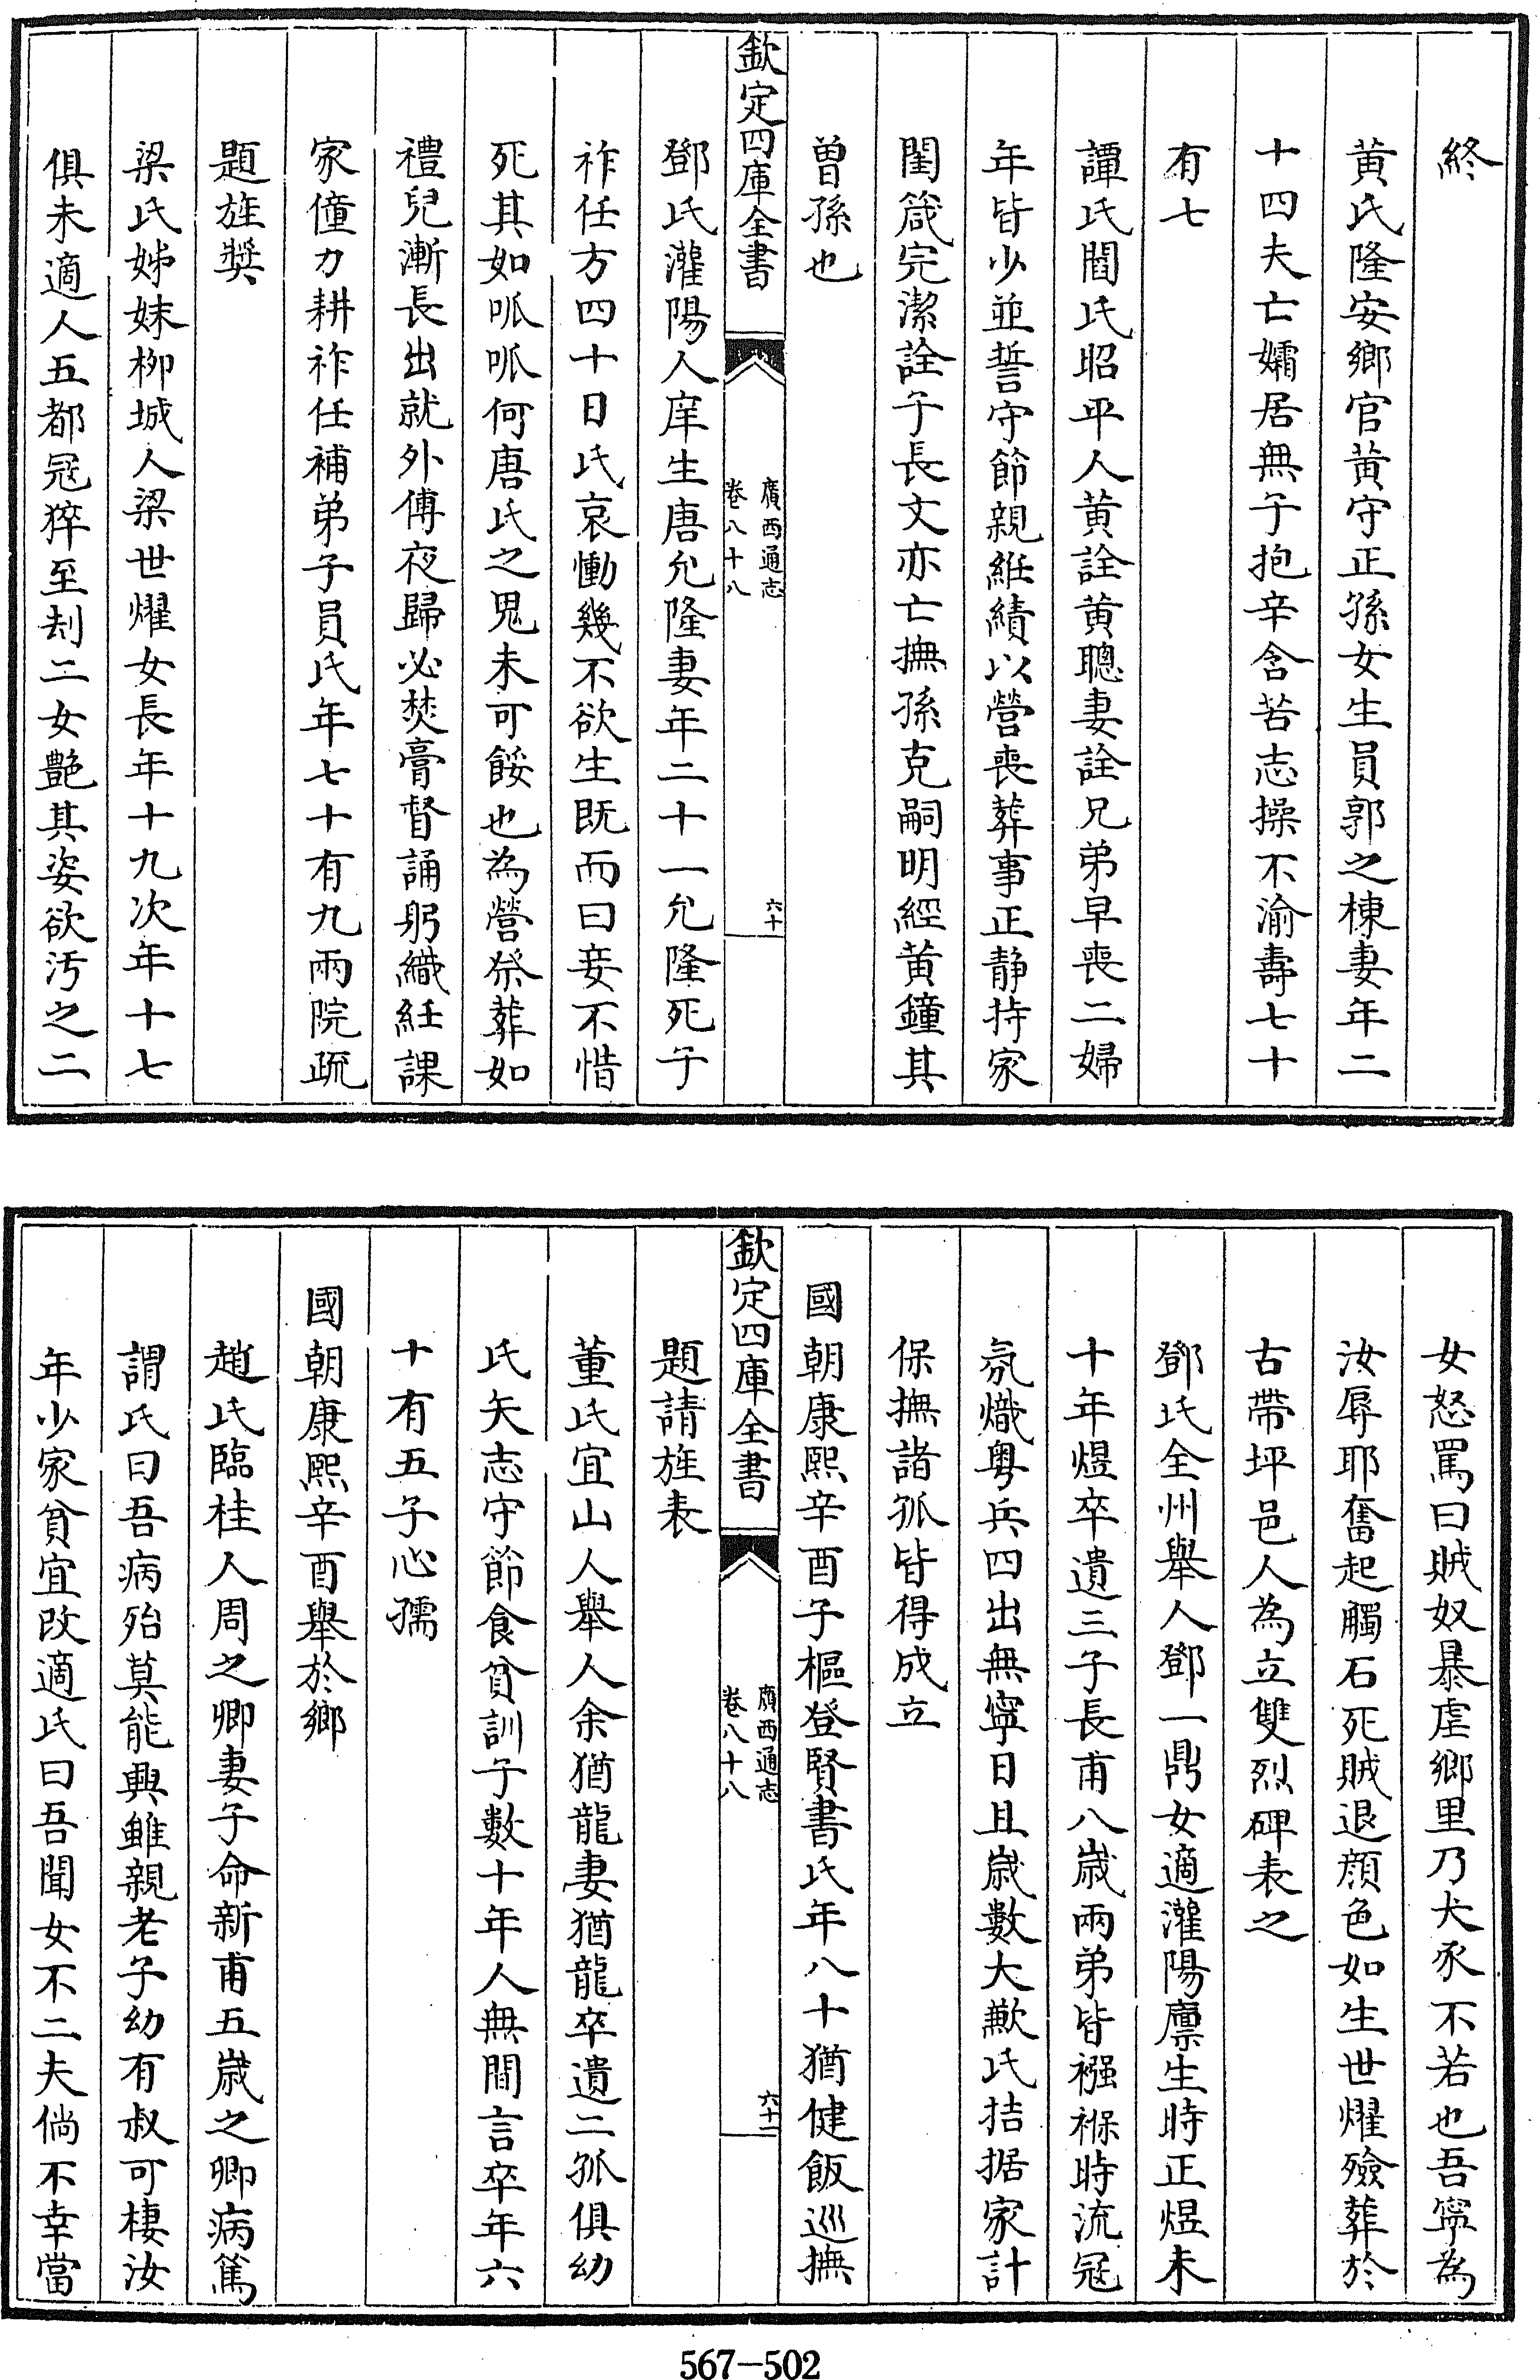 終
黄氏隆安鄉官黄守正孫女生員郭之棟妻年二
十四夫亡孀居無子抱辛含苦志操不渝壽七十
有七
譚氏閻氏昭平人黄詮黄聰妻詮兄弟早喪二婦
年皆少並誓守節親紝績以營喪葬事正靜持家
閨箴完潔詮子長文亦亡撫孫克嗣明經黄鐘其
曾孫也
欽定四庫全書
廣西通志
卷八十八
六十
鄧氏灌陽人庠生唐允隆妻年二十一允隆死子
祚任方四十日氏哀慟幾不欲生既而曰妾不惜
死其如呱呱何唐氏之鬼未可餒也為營祭葬如
禮兒漸長出就外傅夜歸必焚膏督誦躬織紝課
家僮力耕祚任補弟子員氏年七十有九兩院疏
題旌奬
梁氏姊妹柳城人梁世燿女長年十九次年十七
俱未適人五都冦猝至刦二女艷其姿欲汚之二
女怒罵曰賊奴暴虐鄉里乃犬豕不若也吾寧為
汝辱耶奮起觸石死賊退顔色如生世燿殮葬於
古帶坪邑人為立雙烈碑表之
鄧氏全州舉人鄧一鼎女適灌陽廪生時正煜未
十年煜卒遺三子長甫八歲兩弟皆襁褓時流冦
氛熾粤兵四出無寧日且歲數大歉氏拮据家計
保撫諸孤皆得成立
國朝康熙辛酉子樞登賢書氏年八十猶健飯巡撫
欽定四庫全書
廣西通志
卷八十八
六十一
題請旌表
董氏宜山人舉人余猶龍妻猶龍卒遺二孤俱幼
氏矢志守節食貧訓子數十年人無間言卒年六
十有五子心孺
國朝康熙辛酉舉於鄉
趙氏臨桂人周之卿妻子命新甫五歲之卿病篤
謂氏曰吾病殆莫能興雖親老子幼有叔可棲汝
年少家貧宜改適氏曰吾聞女不二夫倘不幸當
567-502